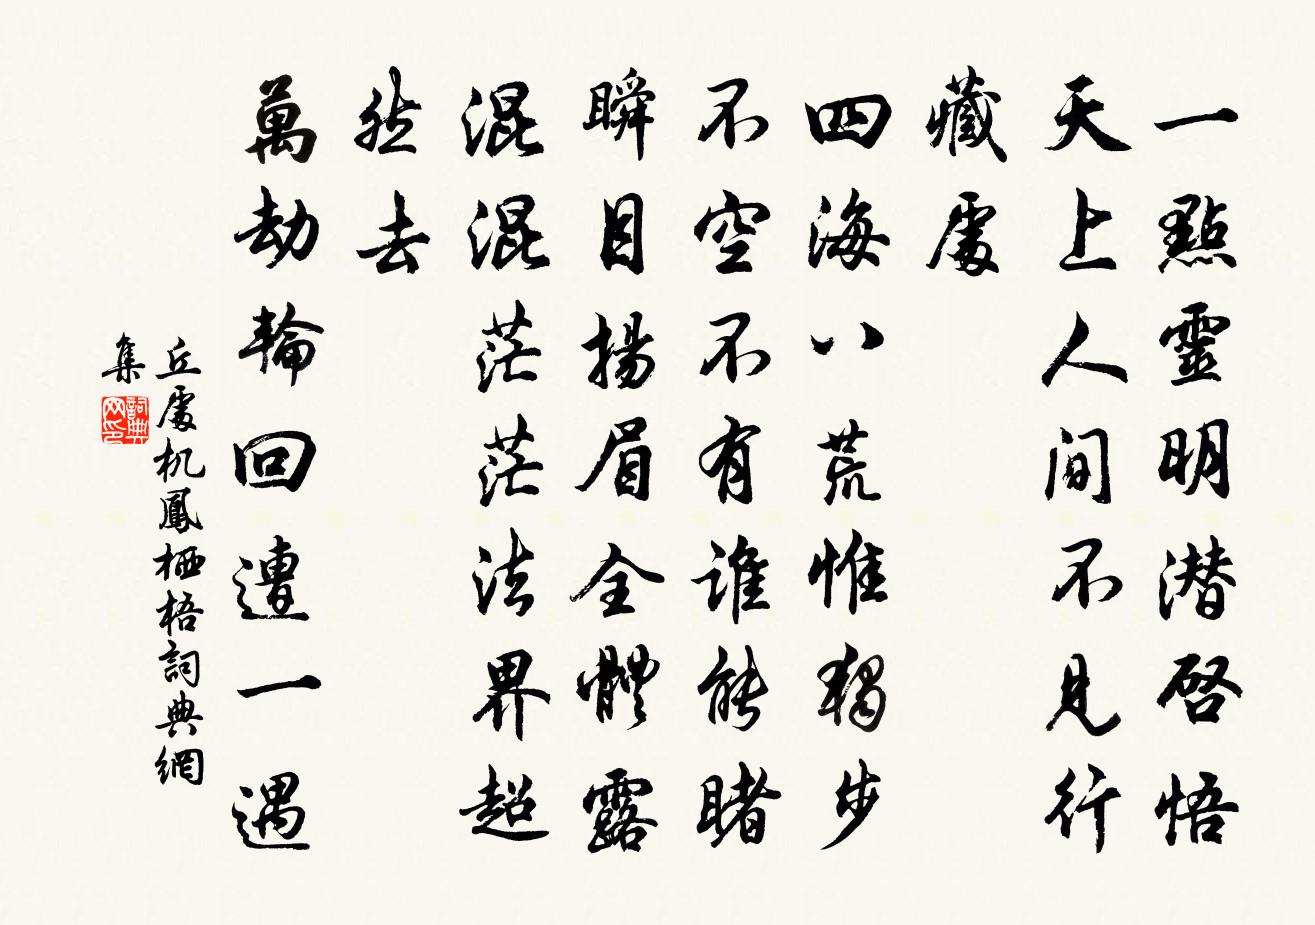 一點靈明潛啓悟
天上人間不見行
藏處
四海八荒惟獨步
不空不有誰能睹
瞬目揚眉全體露
混混茫茫法界超
然去
萬劫輪回遭一遇
丘處机鳳栖梧詞典網
集
詞典网印